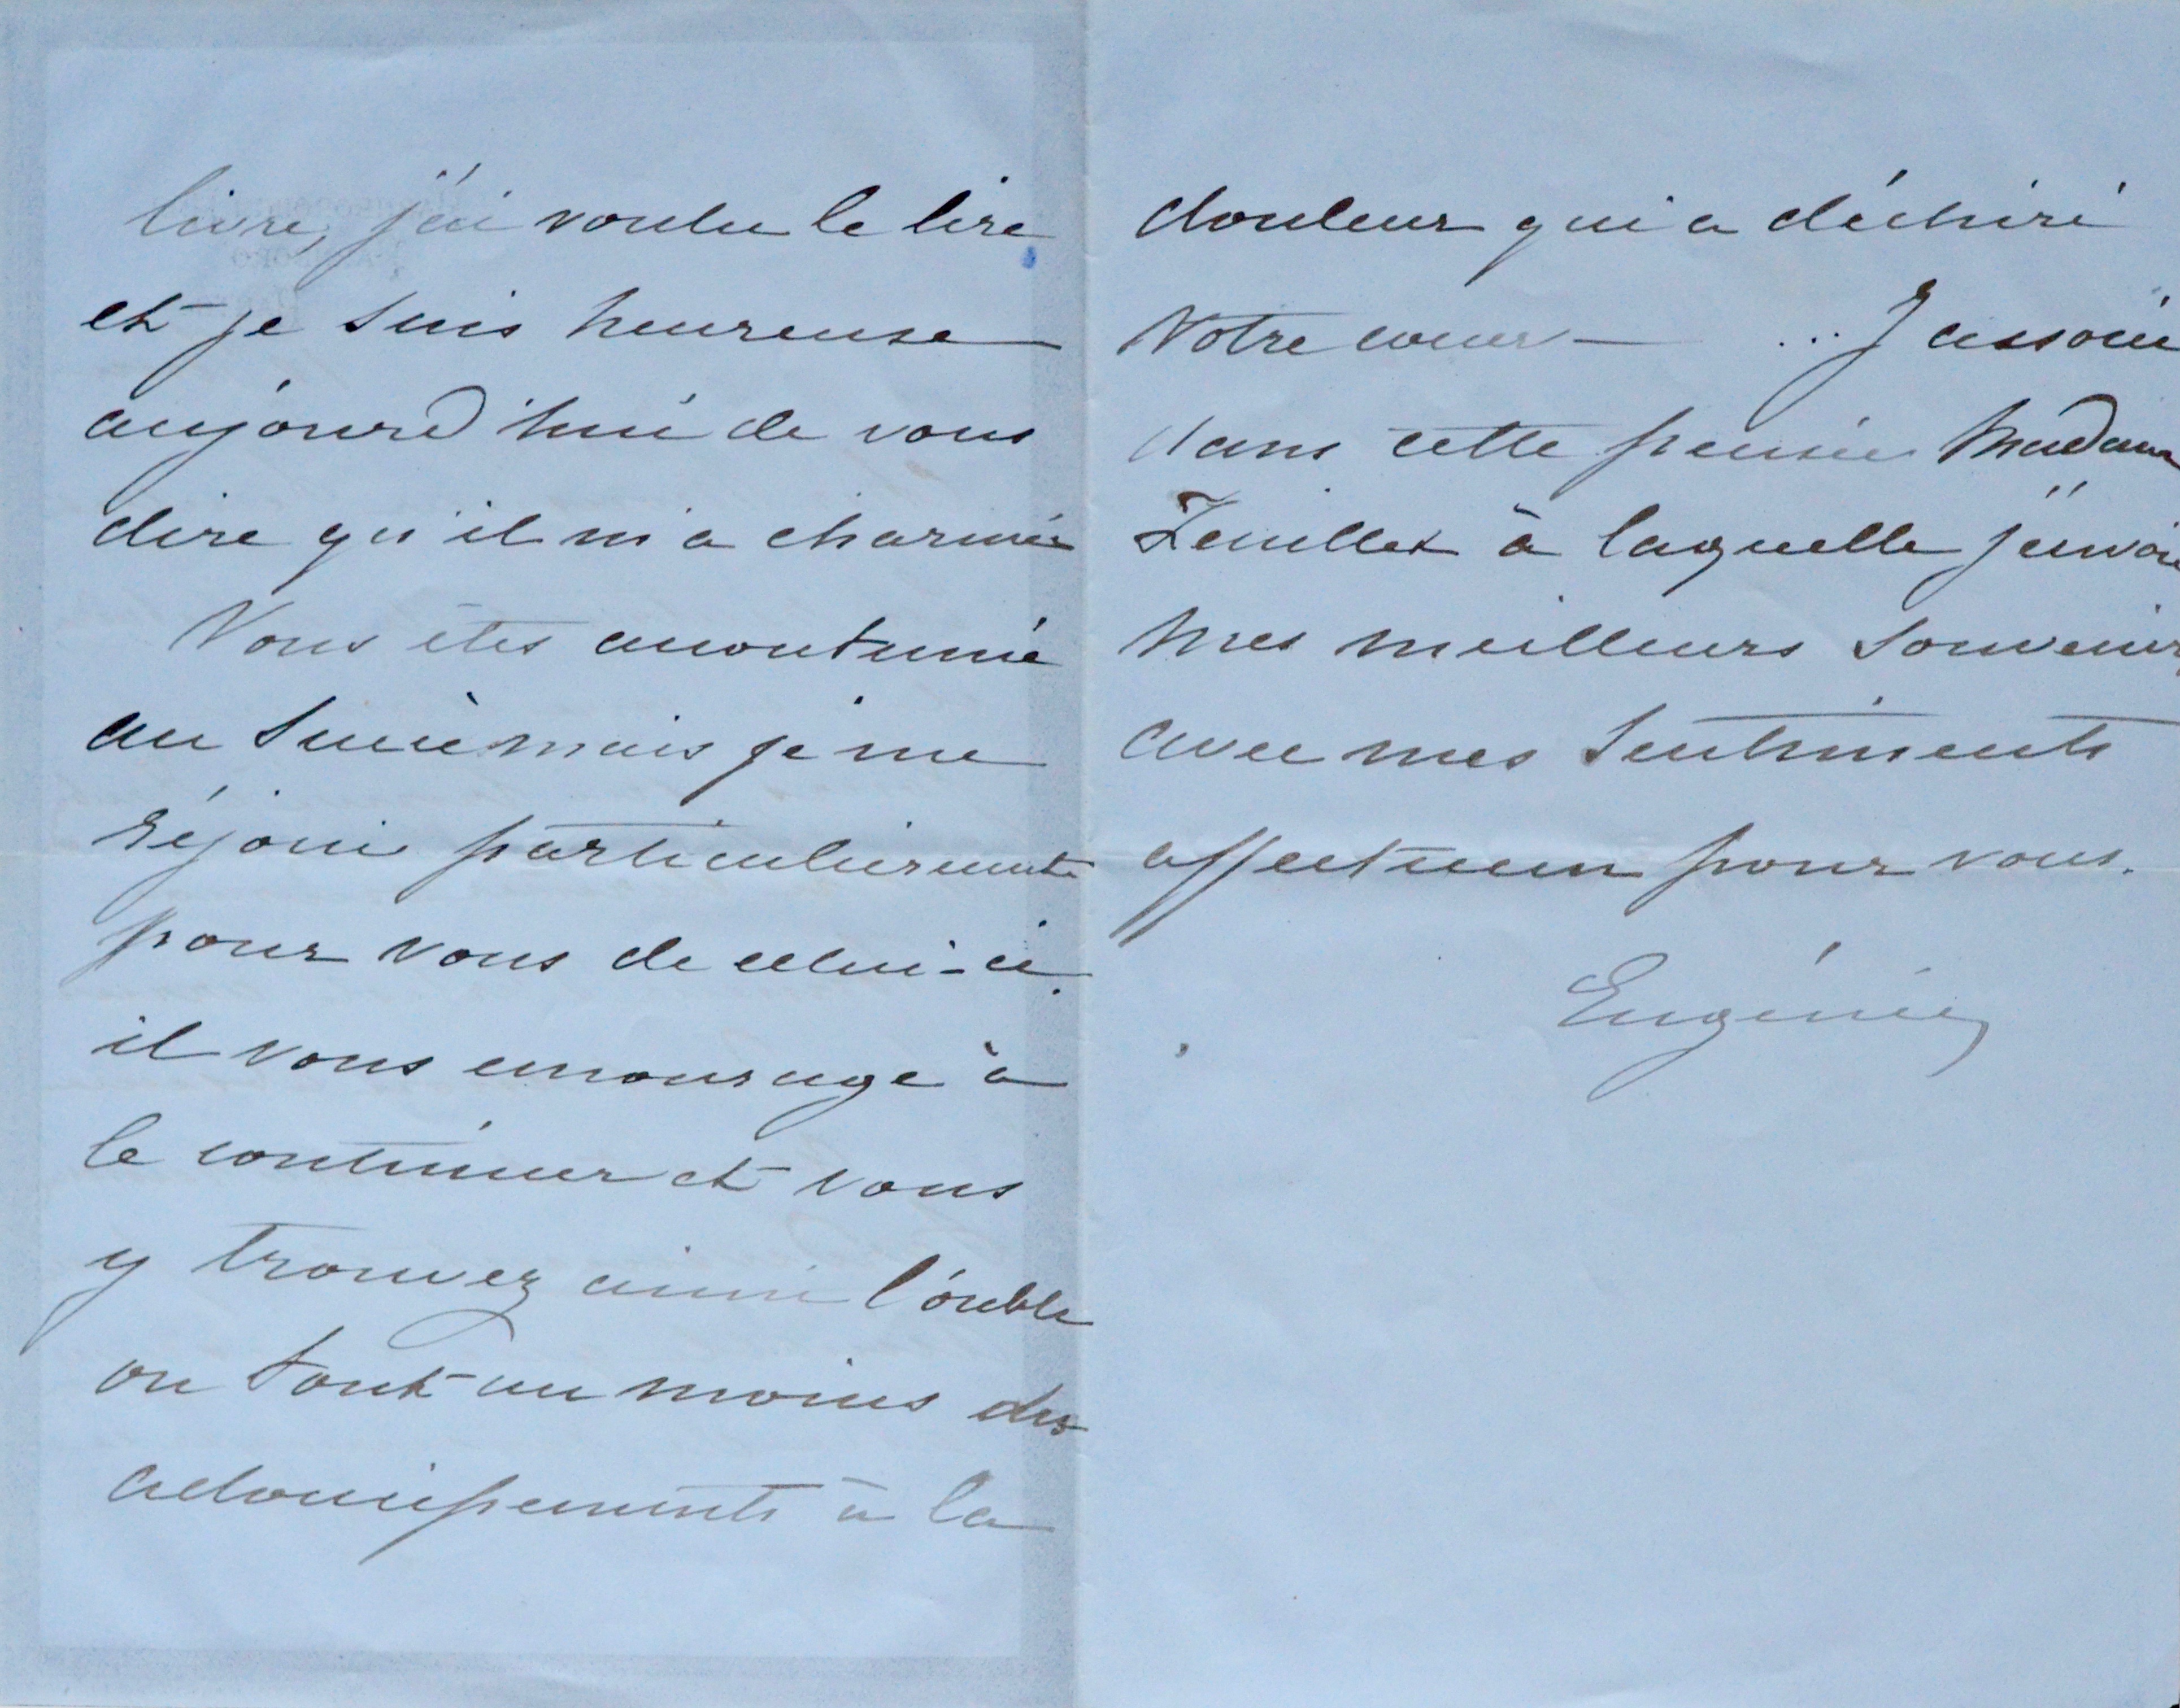 livre, j'ai voulu le lire
et je suis heureuse
aujourd'hui de vous
dire qu'il m'a charmée
Vous êtes accoutumé
au succè mais je me
réjoui particulièrement
pour vous de celui-ci.
il vous encourage à
le continuer et vous
y trouvez ainsi l'oubli
ou tout au moins des
adoucissements à la
douleur qui a déchiré
Votre coeur — J'associe
dans cette pensée Madame
Feuillet à laquelle j'envoie
mes meilleurs souvenirs
avec mes sentiments
affectueux pour vous.
Eugénie